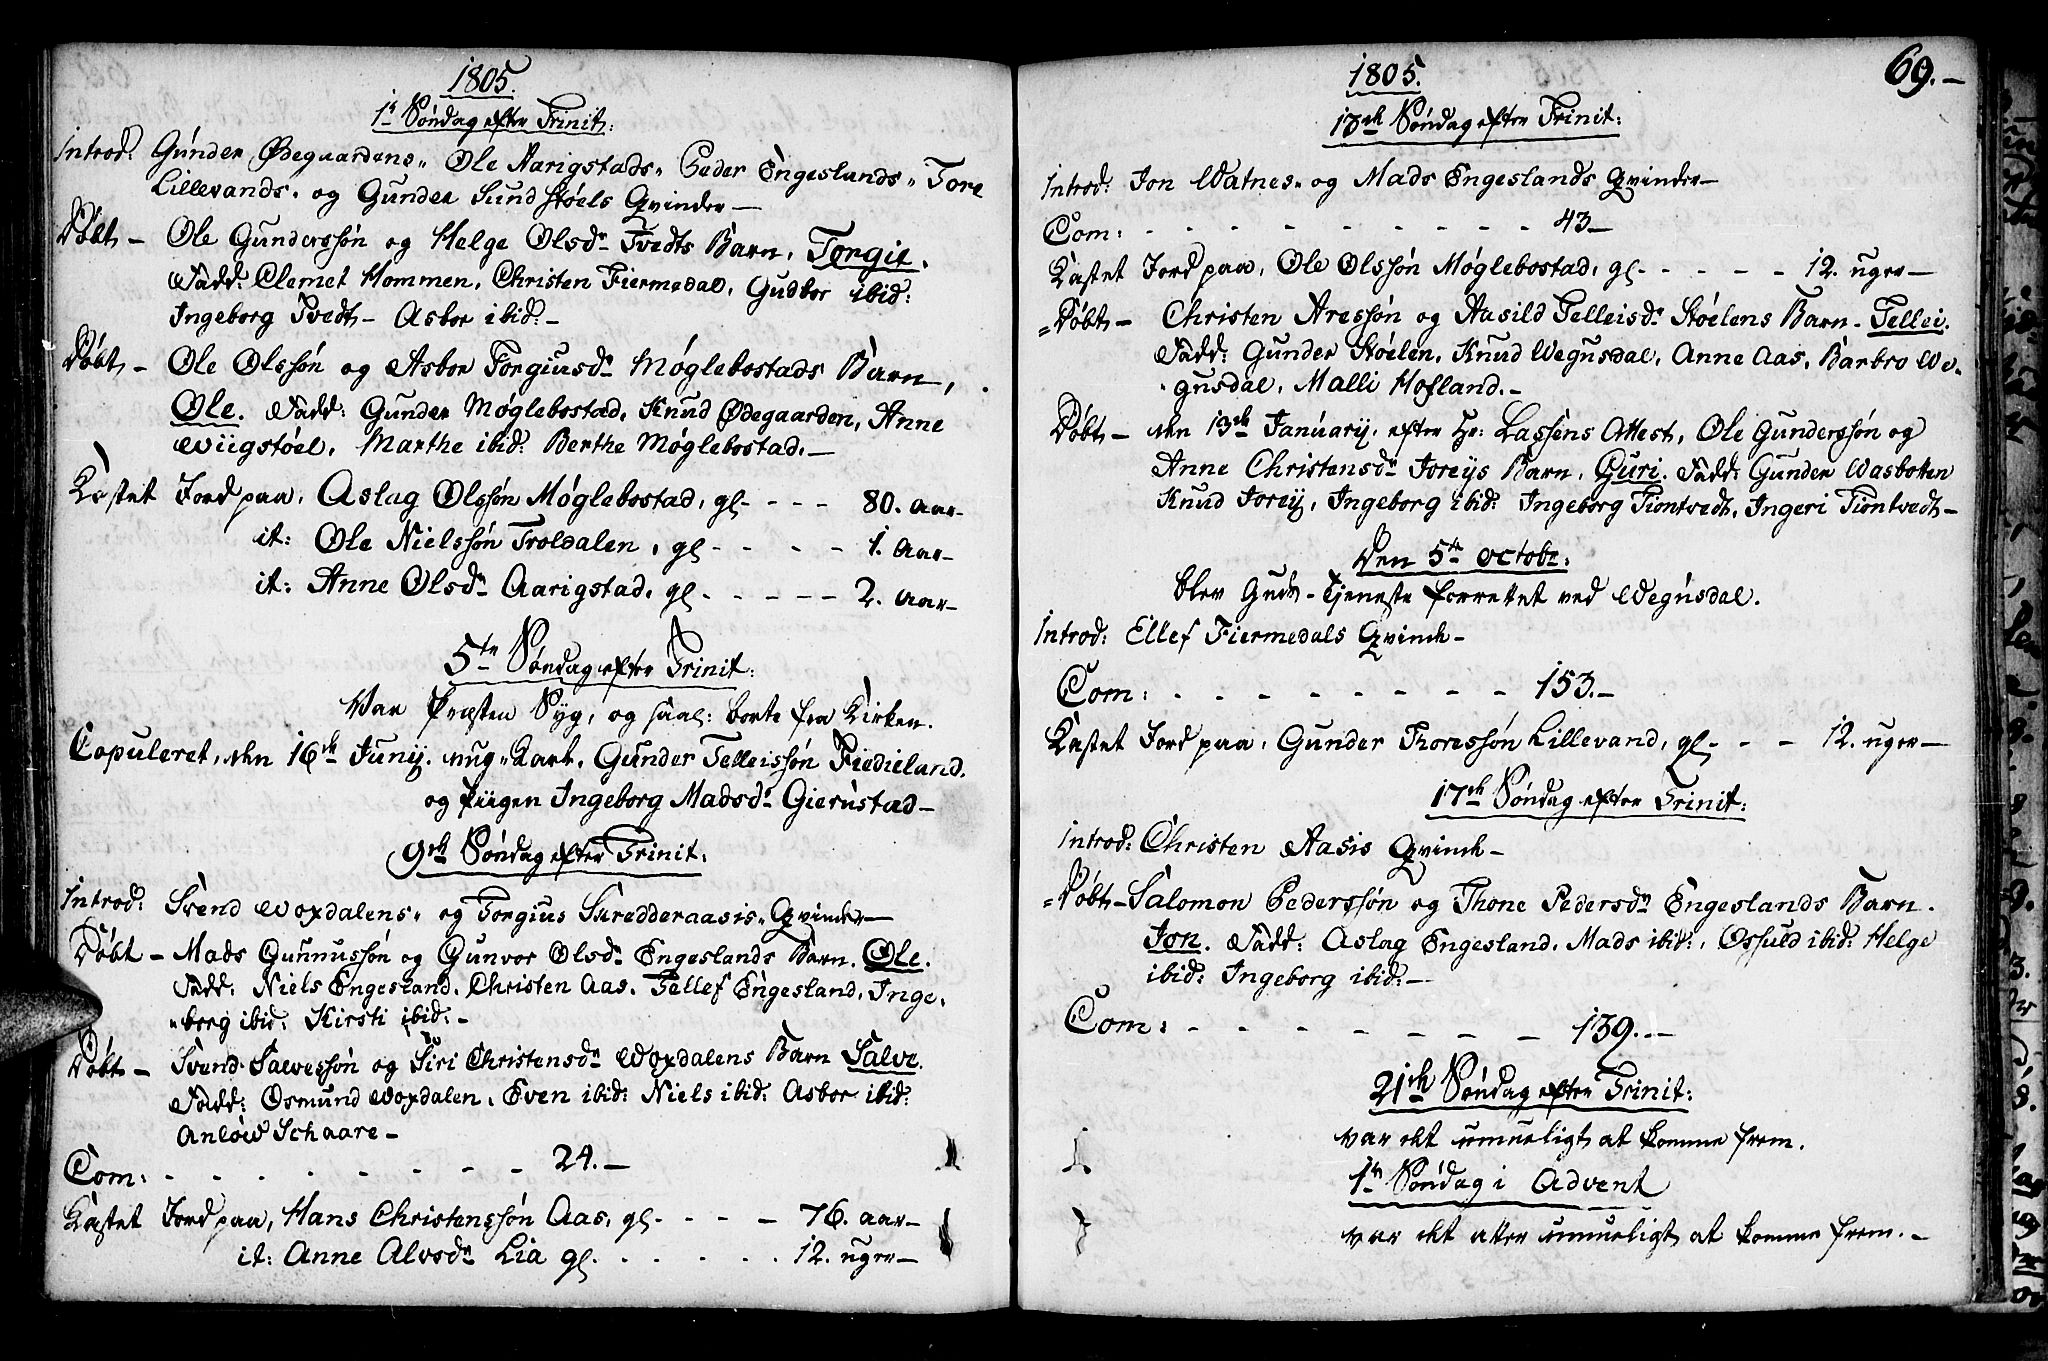 1805.
1te Søndag efter Trinit:
Introd: Gunder Ødegaardens, Ole Aarigstads, Peder Engeslands, Tore
Lillevands, og Gunder Sundstøels Qvinder—
Døbt — Ole Gunderssøn og Helge Olsdr Tvedts Barn, Torgie.
Fadd: Clemet Hommen, Christen Fiermedal, Gudbor ibid:
Ingeborg Tvedt— Asbor ibid:—
Døbt — Ole Olssøn og Asbor Torgiusdr Møglebostads Barn,
Ole. Fadd: Gunder Møglebostad, Knud Ødegaarden, Anne
Wiigstøel, Marthe ibid: Berthe Møglebostad.—
Kastet Jord paa, Aslag Olssøn Møglebostad, gl - - - 80. aar—
it: Ole Nielssøn Troldalen, gl - - - - 1. Aar—
it: Anne Olsdr Aarigstad, gl - - - - - 2. Aar—
5te Søndag efter Trinit:
Var Præsten Syg, og saal: borte fra Kirken.
Copuleret, den 16de Junij. ung Karl, Gunder Telleissøn Fiedieland.
og Piigen Ingeborg Madsdr Gierustad—
9de Søndag efter Trinit.
Introd: Svend Woxdalens, og Torgius Skredderaasis, Qvinder—
Døbt — Mads Gunnussøn og Gunvor Olsdr Engeslands Barn. Ole.
Fadd: Niels Engesland, Christen Aas, Tellef Engesland, Inge-
"borg ibid: Kirsti ibid:—
Døbt — Svend Salvessøn og Siri Christensdr Woxdalens Barn Salve.
Fadd: Osmund Woxdalen, Even ibid: Niels ibid: Asbor ibid:
Anlow Schaare—
Com: - - - - - - - - 24.—
Kastet Jord paa, Hans Christenssøn Aas, gl - - - - 76. aar—
it: Anne Alvsdr Lia gl. - - - - - 12. uger—
69.—
1805.
13de Søndag efter Trinit:
Introd: Jon Watnes, og Mads Engeslands Qvinder—
Com: - - - - - - - - - - 43—
Kastet Jord paa, Ole Olssøn Møglebostad, gl - - - - - 12. uger—
"Døbt — Christen Aressøn og Aasild Telleisdr Støelens Barn - Tellei.
Fadd: Gunder Støelen, Knud Wegusdal, Anne Aas, Barbro We-
"gusdal, Malli Hofland.—
Døbt — den 13de Januarij, efter Hr: Lassens Attest, Ole Gunderssøn og
Anne Christensdr Joreijs Barn, Guri. Fadd: Gunder Wasbotten
Knud Joreij, Ingeborg ibid: Ingeborg Tiontvedt, Ingeri Tiontvedt—
Den 5te Octobr:
blev Guds-Tjeneste forrettet ved Wegusdal.
Introd: Ellef Fiermedals Qvinde—
Com: - - - - - - - - - 153.—
Kastet Jord paa, Gunder Thoressøn Lillevand, gl - - - 12. uger—
17de Søndag efter Trinit:
Introd: Christen Aasis Qvinde—
"Døbt — Salomon Pederssøn og Thone Pedersdr Engeslands Barn.
Jon. Fadd: Aslag Engesland, Mads ibid:, Osuld ibid: Helge
ibid: Ingeborg ibid:—
Com: - - - - - - - - - 139.—
21de Søndag efter Trinit:
var det umueligt at komme frem.
1te Søndag i Advent
var det atter umueligt at komme frem.—